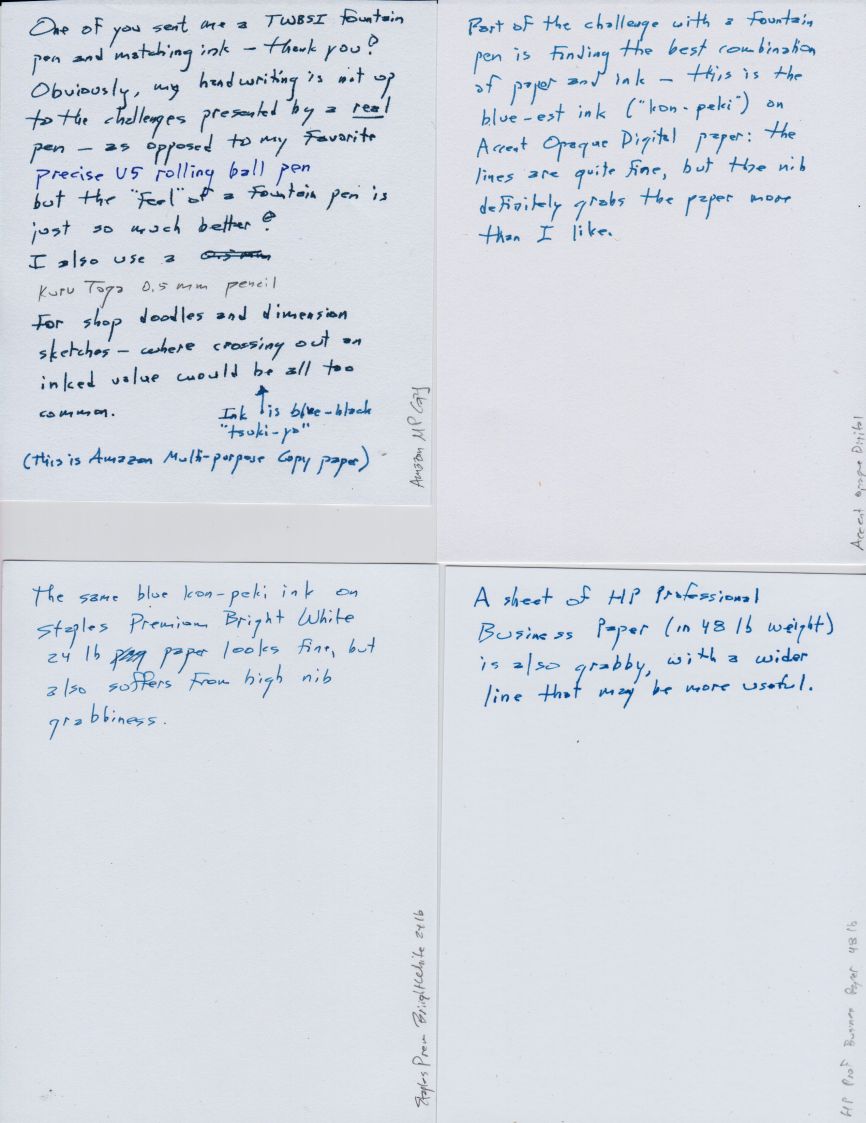 One of you sent me a TWBSI fountain
pen and matching ink – thank you!
Obviously, my handwriting is not up
to the challenges presented by a real
pen – as opposed to my favorite
precise V5 rolling ball pen
but the "feel" of a fountain pen is
just so much better!
I also use a 0.5 mm
Kuru Toga 0.5 mm pencil
for shop doodles and dimension
sketches – where crossing out an
inked value would be all too
common.
Ink is blue-black
"tsuki-yo"
(this is Amazon Multi-purpose Copy paper)
Amazon MP Copy
Part of the challenge with a fountain
pen is finding the best combination
of paper and ink – this is the
blue-est ink ("kon-peki") on
Accent Opaque Digital paper: the
lines are quite fine, but the nib
definitely grabs the paper more
than I like.
Accent Opaque Digital
The same blue kon-peki ink on
Staples Premium Bright White
24 lb paper looks fine, but
also suffers from high nib
grabbiness.
Staples Prem BrightWhite 24 lb
A sheet of HP Professional
Business Paper (in 48 lb weight)
is also grabby, with a wider
line that may be more useful.
HP Prof Business Paper 48 lb